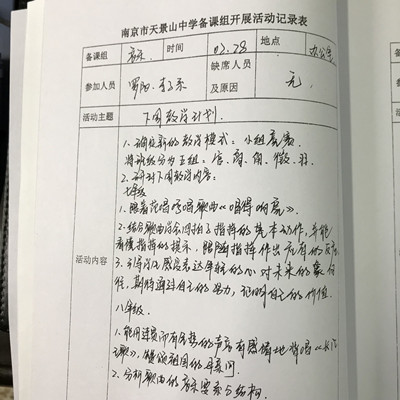 南京市天景山中学备课组开展活动记录表
备课组 音乐 时间 02.28 地点 办公室
参加人员 罗阳
缺席人员及原因 无
活动主题 下周教学计划
活动内容
1、确定新的教学模式：小组竞赛
将班级分为五组：宫、商、角、徵、羽
2、研讨下周教学内容：
七年级
1、跟着范唱哼唱歌曲《唱得响亮》。
2、结合歌曲学会四拍子指挥的基本动作，并能
看懂指挥的提示，跟随指挥作出应有的反应
3、引导学生感受表达年轻的心对未来的豪
往，期盼通过自己的努力，证明自己的价值。
八年级
1、能用连贯而有气势的声音有感情地背唱《长江
之歌》
2、分析歌曲的音乐要素与结构